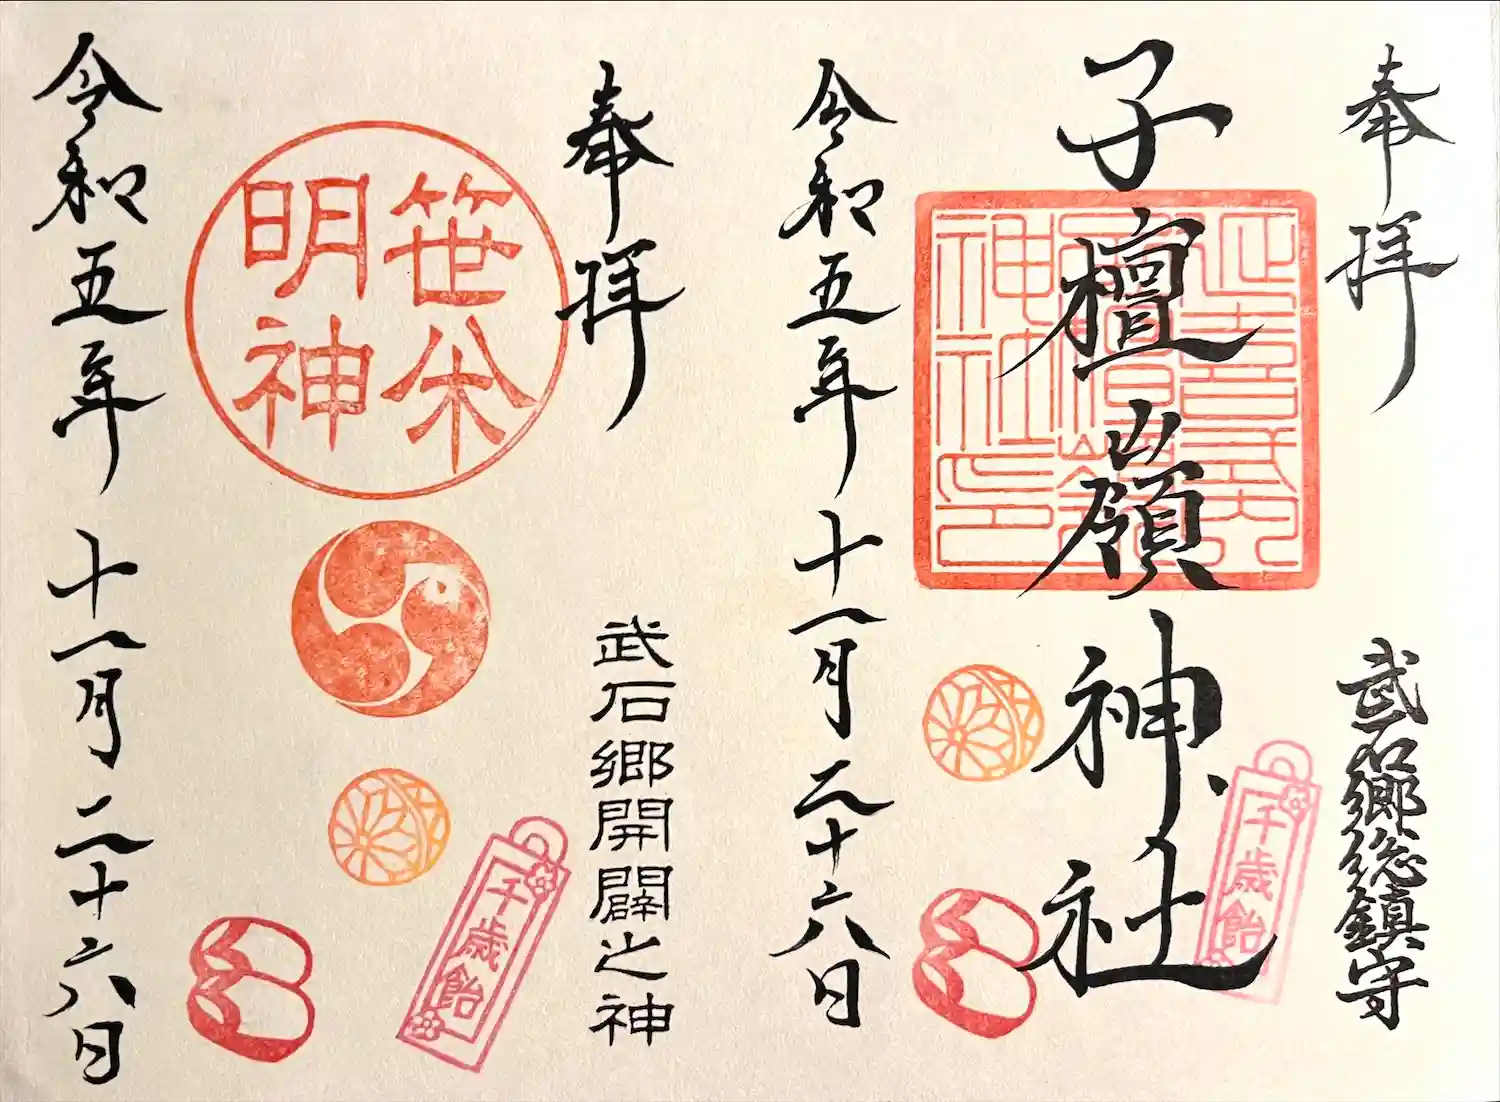 奉拝
武石郷総鎮守
子檀嶺神社
延喜式内
子檀嶺
神社印
千歳飴
令和五年十一月二十六日
奉拝
武石郷開闢之神
笹
明神
千歳飴
令和五年十一月二十六日